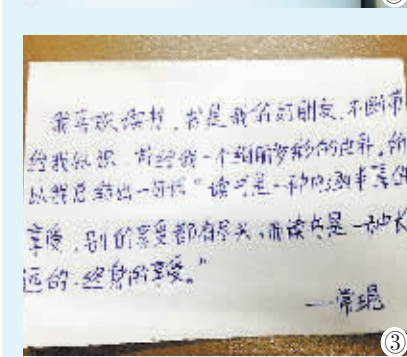 我喜欢读书，书是我们的朋友，不断带
给我知识，带给我一个绚丽多彩的世界，所
以我总结出一句话“读书是一种
享受，别的享受都有尽头，而读书是一种长
远的、终身的享受。”
——常琨
③